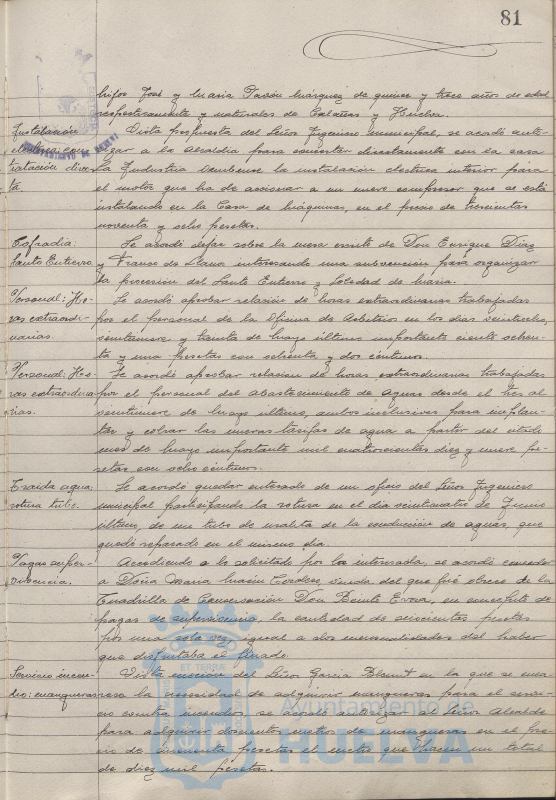 81
hijos José y María Pavón Márquez de quince y trece años de edad
respectivamente y naturales de Calañas y Huelva.
Instalación
Vista propuesta del Señor Ingeniero municipal, se acordó auto-
rizar a la Alcaldía para concertar directamente con la casa
tratación direc-
ta
La Industria Onubense la instalación eléctrica interior para
el motor que ha de accionar a un nuevo compresor que se está
instalando en la Casa de Máquinas, en el precio de trescientas
noventa y ocho pesetas.
Cofradía:
Santo Entierro
Se acordó dejar sobre la mesa escrito de Don Enrique Díaz
y Franco de Llano, interesando una subvención para organizar
la procesión del Santo Entierro y Soledad de María.
Personal: Ho-
ras extraordi-
narias.
Se acordó aprobar relación de horas extraordinarias trabajadas
por el personal de la Oficina de Arbitrios en los días veintiocho,
veintinueve y treinta de Mayo último importante ciento ochen-
ta y una pesetas con ochenta y dos céntimos.
Personal: Ho-
ras extraordina-
rias.
Se acordó aprobar relación de horas extraordinarias trabajadas
por el personal del Abastecimiento de Aguas desde el tres al
veintinueve de Mayo último, ambos inclusives, para implan-
tar y cobrar las nuevas tarifas de agua a partir del citado
mes de Mayo importante mil cuatrocientas diez y nueve pe-
setas con ocho céntimos.
Traida agua:
rotura tubo.
Se acordó quedar enterado de un oficio del Señor Ingeniero
municipal participando la rotura en el día veinticuatro de Junio
último, de un tubo de uralita de la conducción de aguas, que
quedó reparado en el mismo día.
Pagas super-
vivencia.
Accediendo a lo solicitado por la interesada, se acordó conceder
a Doña María Marín Cordero, viuda del que fué obrero de la
Cuadrilla de Conservación Don Benito Erosa, en concepto de
pagas de supervivencia la cantidad de seiscientas pesetas
por una sola vez, igual a dos mensualidades del haber
que disfrutaba el finado.
Servicio incen-
dio: mangueras
Vista moción del Señor García Blanut en la que se expo-
ne la necesidad de adquirir mangueras para el servi-
cio contra incendios, se acordó autorizar al Señor Alcalde
para adquirir doscientos metros de mangueras en el pre-
cio de cincuenta pesetas el metro que hacen un total
de diez mil pesetas.
ET TERRA
Ayuntamiento de
HUELVA